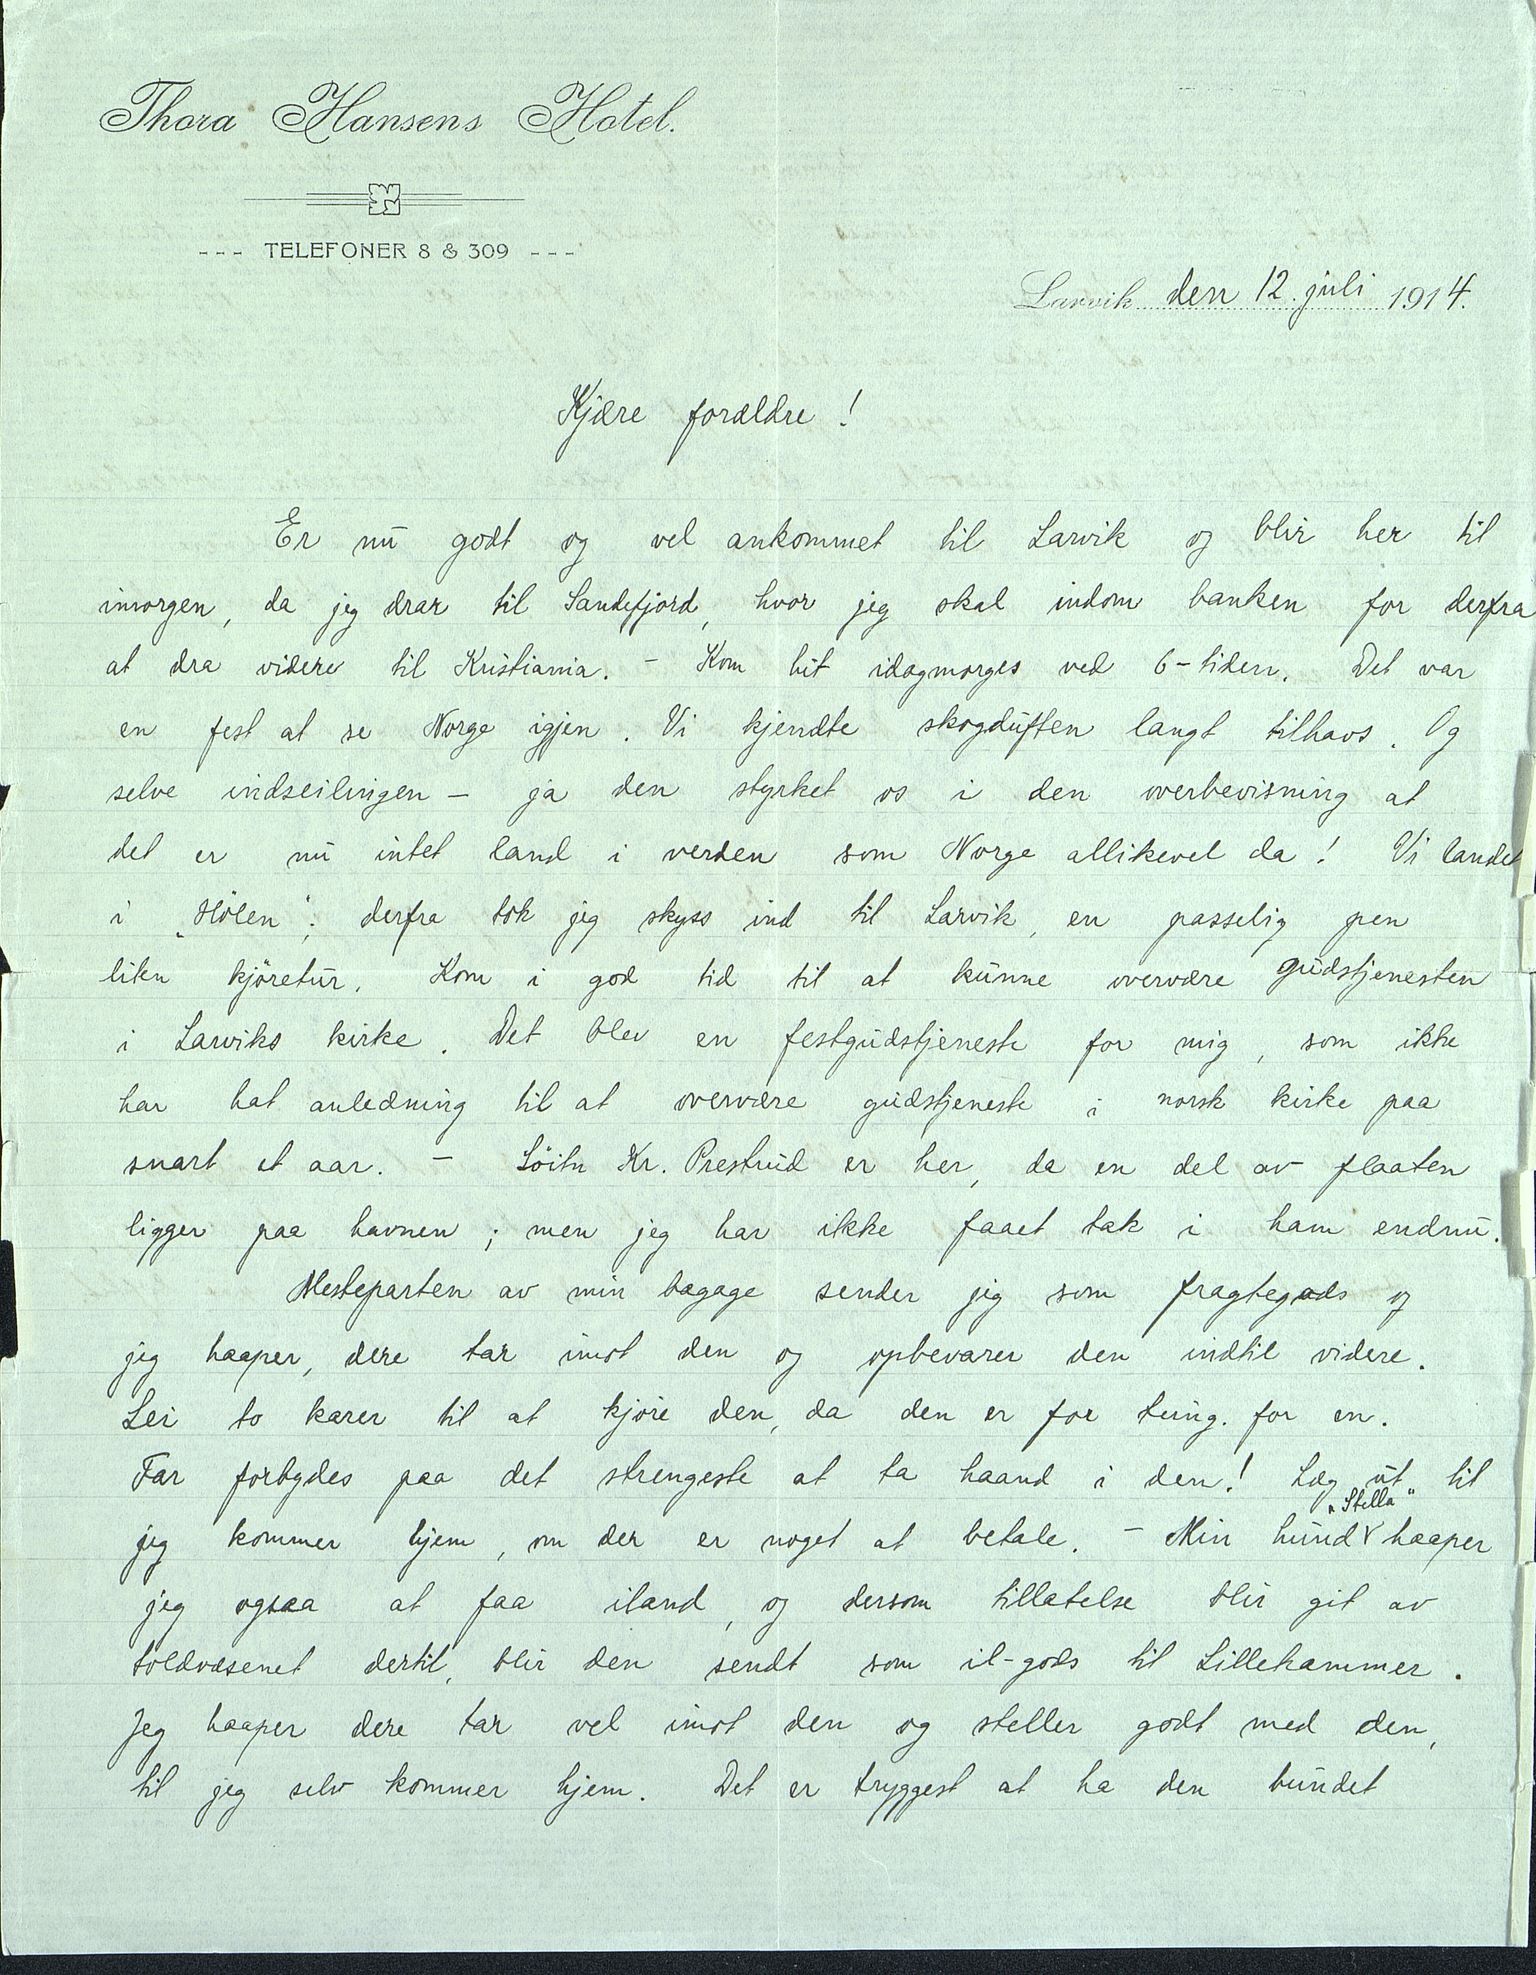 Thora Hansens Hotel.
--- TELEFONER 8 & 309 ---
Larvik den 12. juli 1914.
Kjære forældre!
Er nu godt og vel ankommet til Larvik og blir her til
imorgen, da jeg drar til Sandefjord, hvor jeg skal indom banken for derfra
at dra videre til Kristiania. – Kom hit idagmorges ved 6-tiden. Det var
en fest at se Norge igjen. Vi kjendte skogduften langt tilhavs. Og
selve indseilingen – ja den styrket os i den overbevisning at
det er nu intet land i verden som Norge allikevel da! Vi landet
i „Hölen“; derfra tok jeg skyss ind til Larvik, en passelig pen
liten kjöretur. Kom i god tid til at kunne overvære gudstjenesten
i Larviks kirke. Det blev en festgudstjeneste for mig, som ikke
har hat anledning til at overvære gudstjeneste i norsk kirke paa
snart et aar. – Löitn Kr. Prestrud er her, da en del av flaaten
ligger paa havnen; men jeg har ikke faaet tak i ham endnu.
Mesteparten av min bagage sender jeg som fragtegods og
jeg haaper, dere tar imot den og opbevarer den indtil videre.
Lei to karer til at kjöre den, da den er for tung for en.
Far forbydes paa det strengeste at ta haand i den! Læg ut til
jeg kommer hjem, om der er noget at betale. – Min hund „Stella“ haaper
jeg ogsaa at faa iland, og dersom tillatelse blir git av
toldvæsenet dertil, blir den sendt som il-gods til Lillehammer.
Jeg haaper dere tar vel imot den og steller godt med den,
til jeg selv kommer hjem. Det er tryggest at ha den bundet